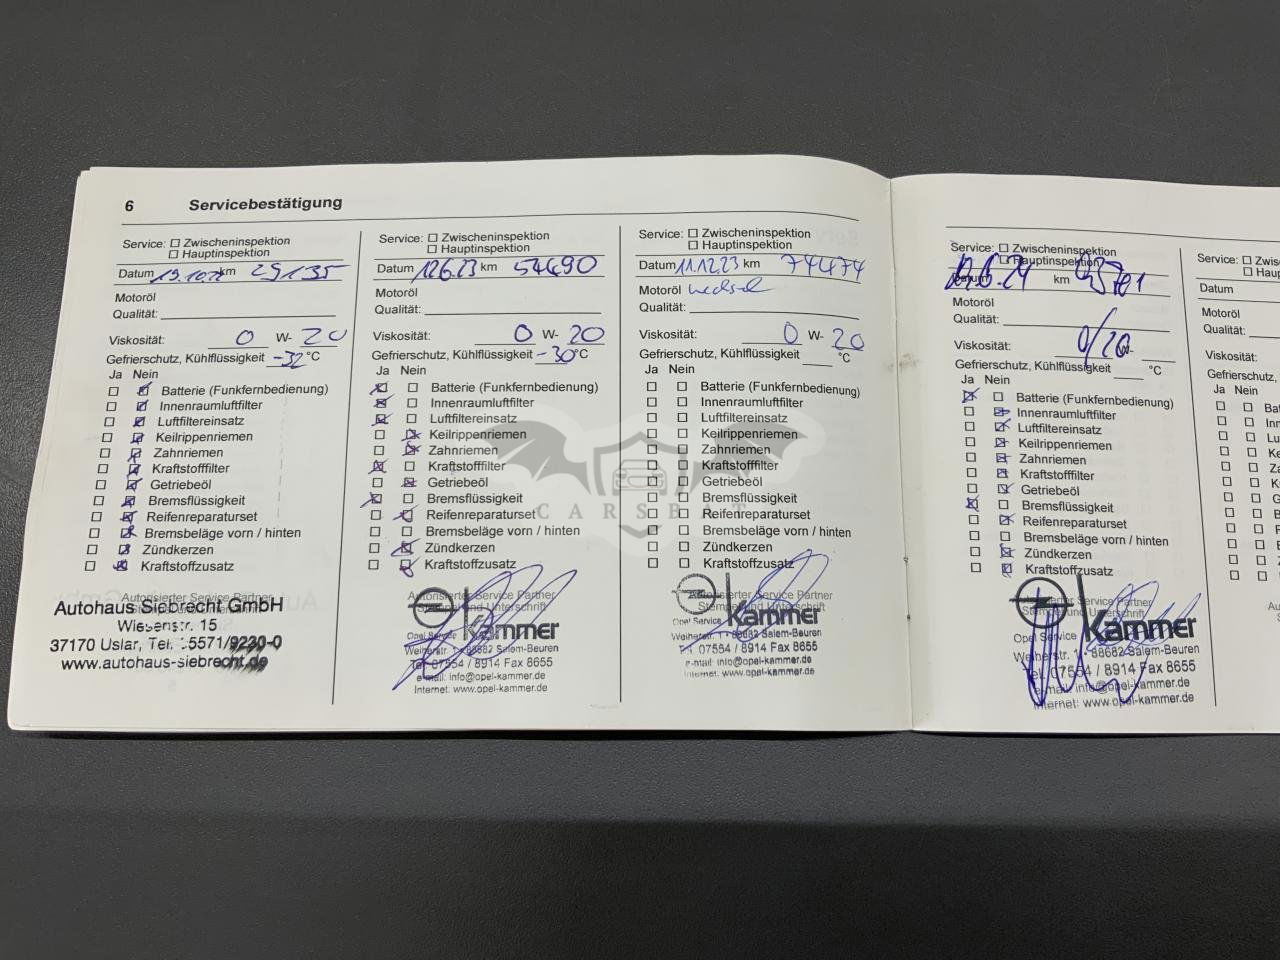 6 Servicebestätigung
Service: Zwischeninspektion
Hauptinspektion
Datum km 29135
Motoröl
Qualität:
Viskosität: 0 W- 20
Gefrierschutz, Kühlflüssigkeit -32 °C
Ja Nein
Batterie (Funkfernbedienung)
Innenraumluftfilter
Luftfiltereinsatz
Keilrippenriemen
Zahnriemen
Kraftstofffilter
Getriebeöl
Bremsflüssigkeit
Reifenreparaturset
Bremsbeläge vorn / hinten
Zündkerzen
Kraftstoffzusatz
Autorisierter Service Partner
Autohaus Siebrecht GmbH
Wiesenstr. 15
37170 Uslar, Tel. 05571/9230-0
www.autohaus-siebrecht.de
Service: Zwischeninspektion
Hauptinspektion
Datum 12.6.23 km 54490
Motoröl
Qualität:
Viskosität: 0 W- 20
Gefrierschutz, Kühlflüssigkeit -30 °C
Ja Nein
Batterie (Funkfernbedienung)
Innenraumluftfilter
Luftfiltereinsatz
Keilrippenriemen
Zahnriemen
Kraftstofffilter
Getriebeöl
Bremsflüssigkeit
Reifenreparaturset
Bremsbeläge vorn / hinten
Zündkerzen
Kraftstoffzusatz
Autorisierter Service Partner
Stempel und Unterschrift
Opel Service Kammer
Weiherstr. 1 • 88682 Salem-Beuren
Tel. 07554 / 8914 Fax 8655
e-mail: info@opel-kammer.de
Internet: www.opel-kammer.de
Service: Zwischeninspektion
Hauptinspektion
Datum 11.12.23 km 74474
Motoröl wechsel
Qualität:
Viskosität: 0 W- 20
Gefrierschutz, Kühlflüssigkeit °C
Ja Nein
Batterie (Funkfernbedienung)
Innenraumluftfilter
Luftfiltereinsatz
Keilrippenriemen
Zahnriemen
Kraftstofffilter
Getriebeöl
Bremsflüssigkeit
Reifenreparaturset
Bremsbeläge vorn / hinten
Zündkerzen
Kraftstoffzusatz
Autorisierter Service Partner
Stempel und Unterschrift
Opel Service Kammer
Weiherstr. 1 • 88682 Salem-Beuren
Tel. 07554 / 8914 Fax 8655
e-mail: info@opel-kammer.de
Internet: www.opel-kammer.de
CARSBAT
Service: Zwischeninspektion
Hauptinspektion
Datum km
Motoröl
Qualität:
Viskosität: 0/20 W-
Gefrierschutz, Kühlflüssigkeit °C
Ja Nein
Batterie (Funkfernbedienung)
Innenraumluftfilter
Luftfiltereinsatz
Keilrippenriemen
Zahnriemen
Kraftstofffilter
Getriebeöl
Bremsflüssigkeit
Reifenreparaturset
Bremsbeläge vorn / hinten
Zündkerzen
Kraftstoffzusatz
Autorisierter Service Partner
Stempel und Unterschrift
Opel Service Kammer
Weiherstr. 1 • 88682 Salem-Beuren
Tel. 07554 / 8914 Fax 8655
e-mail: info@opel-kammer.de
Internet: www.opel-kammer.de
Service:
Datum
Motoröl
Qualität:
Viskosität:
Ja Nein